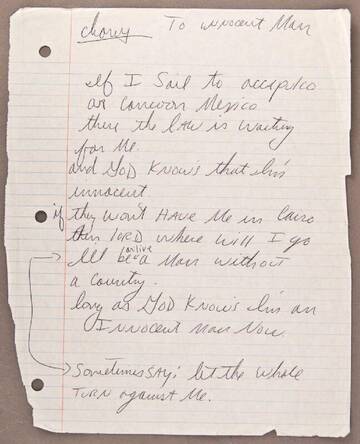 chorey To innocent Man
If I Sail to acapulco
or Cancun Mexico
there the Law is waiting
for Me.
and GOD KNOW'S that I'm
innocent
if they won't HAVE Me in Cairo
then LORD where will I go
I'll be a Man without
a Country.
long as GOD KNOW'S I'm an
INNocent Man Now.
Sometimes SAY: let the whole
TURN against Me.